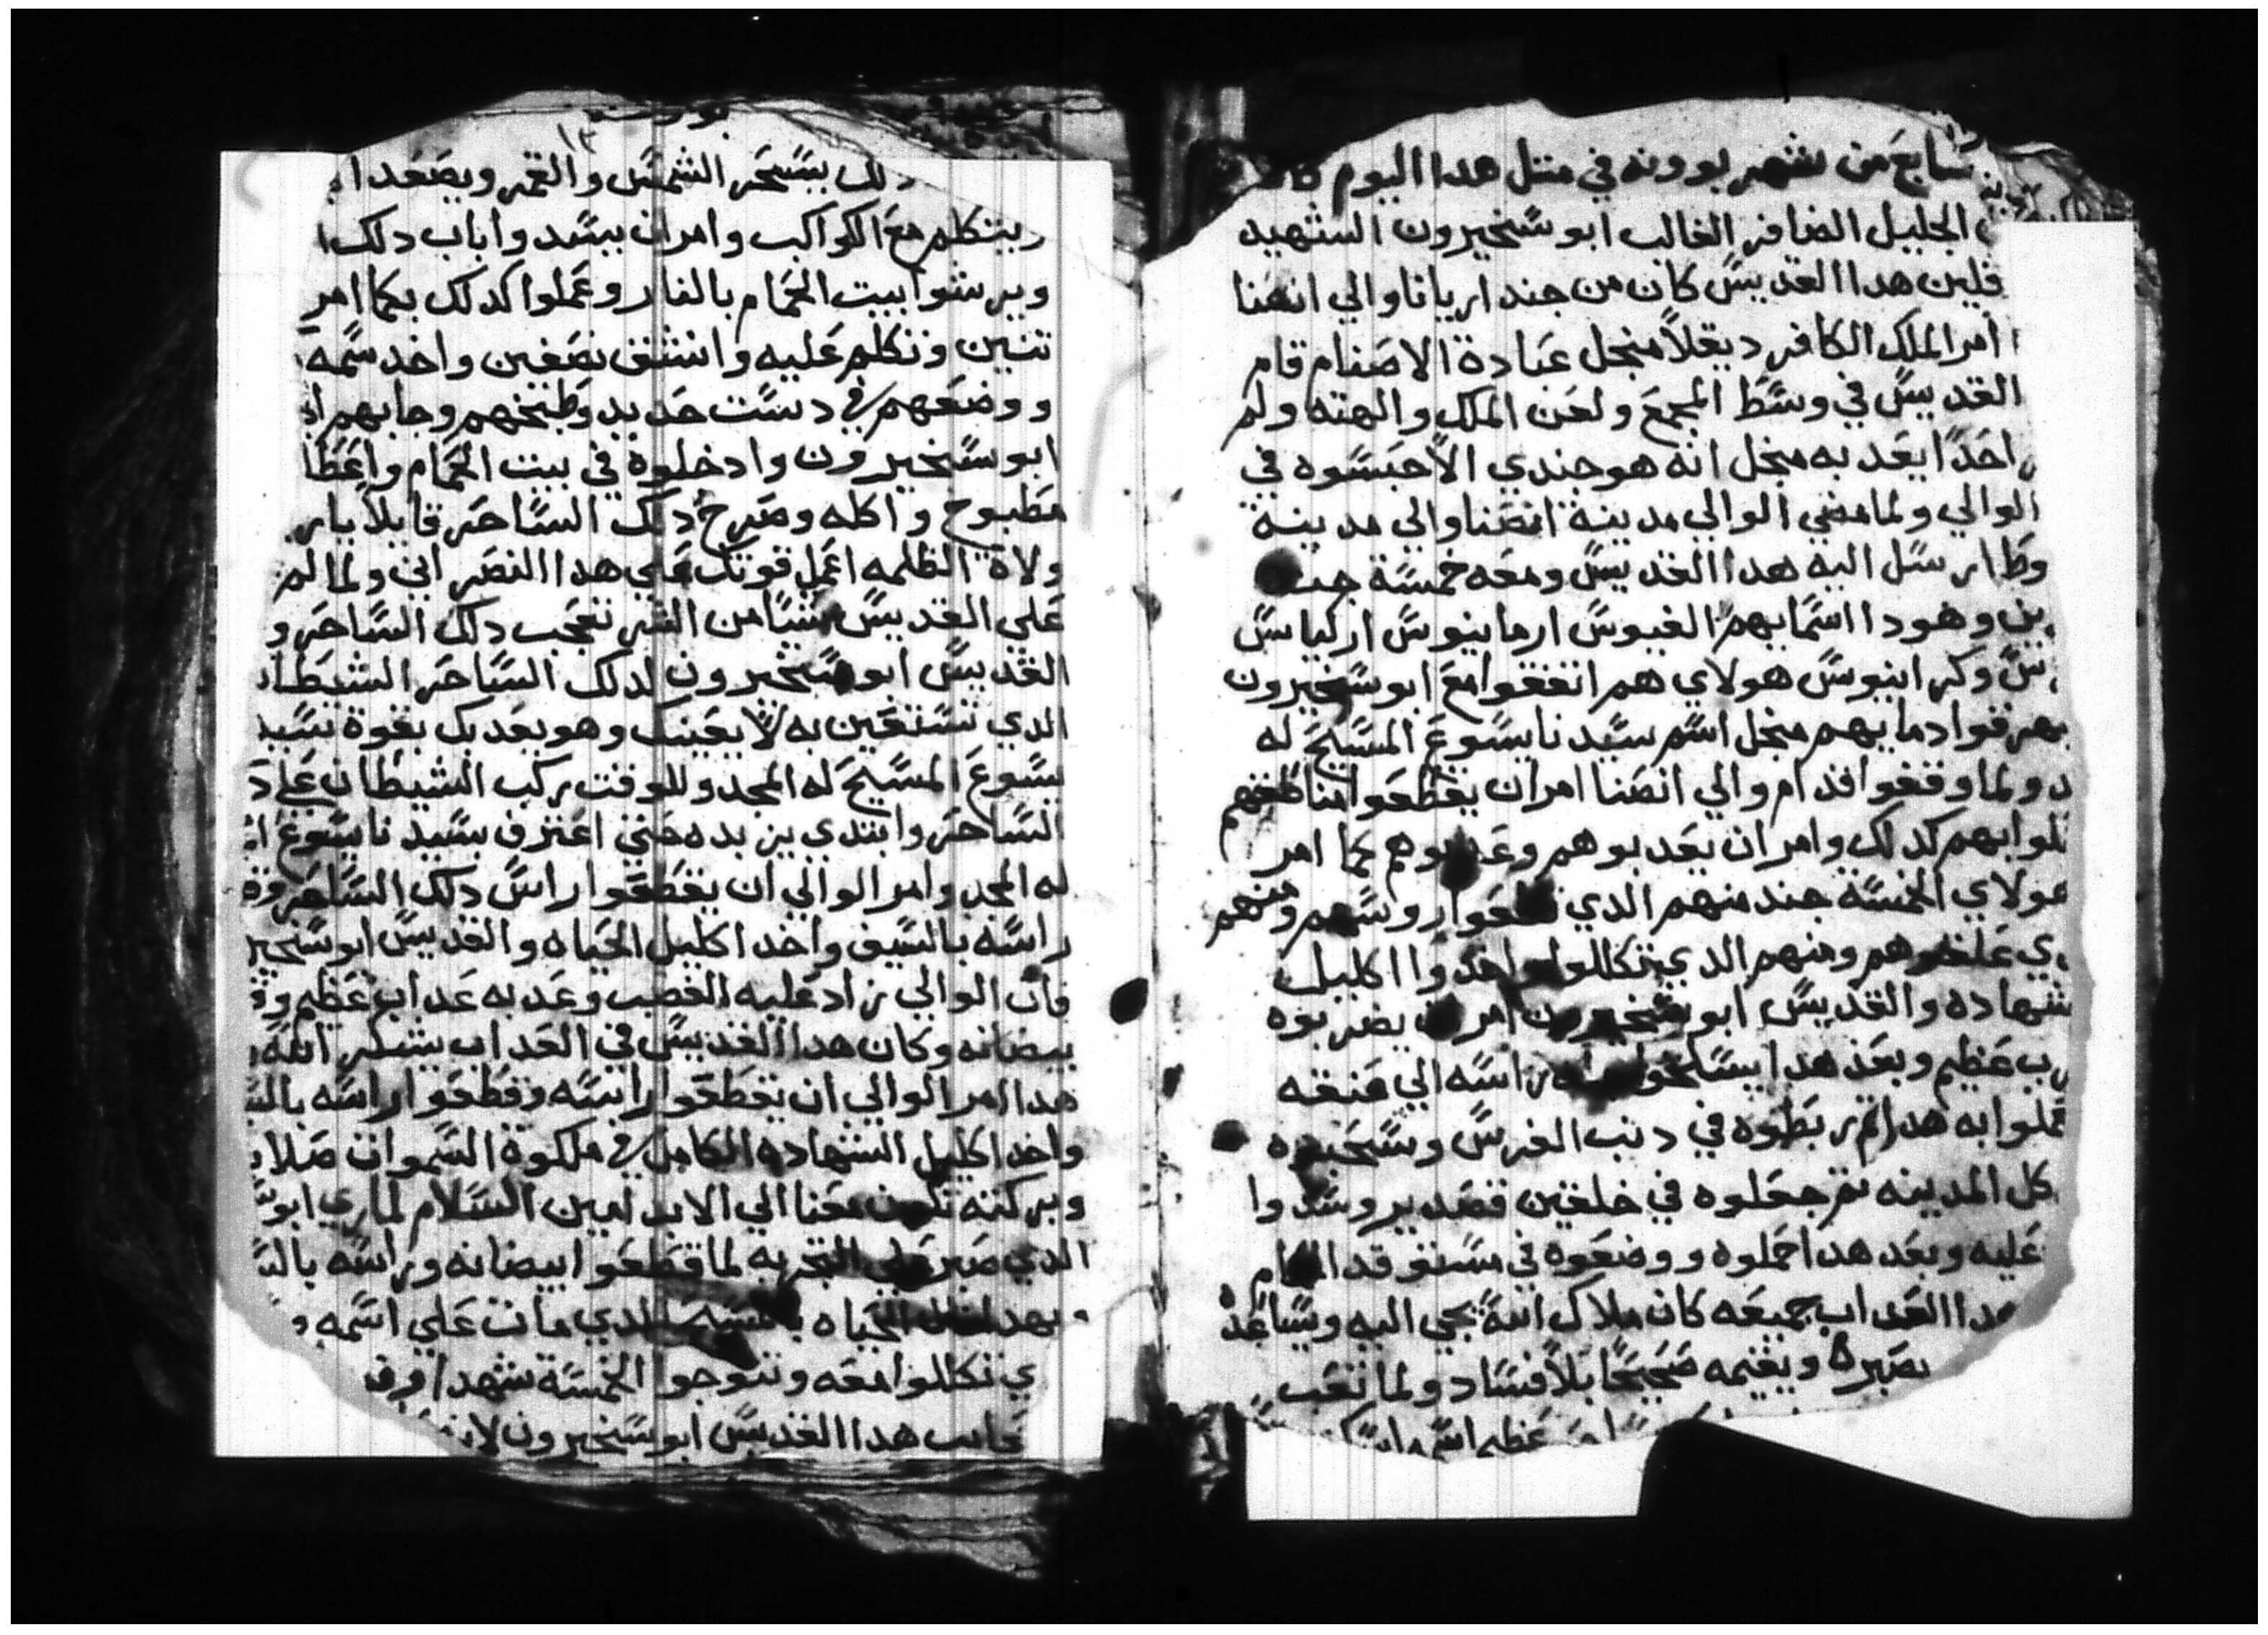 سابع من شهر بوونه في متل هدا اليوم
الجليل الضافر الغالب ابو سخيرون الشهيد
قلين هدا القديس كان من جند اريانا والي انصنا
امر الملك الكافر ديقلا منجل عبادة الاصنام قام
القديس في وسط المجمع ولعن الملك والهته ولم
احدا يعدبه منجل انه هو جندي الا حبسوه في
الوالي ولما مضي الوالي مدينة انصنا والي مدينة
وط ارسل اليه هدا القديس ومعه خمسة
ين وهودا اسمايهم الفيوس ارمانيوس اركياس
س وكرانيوس هولاي هم اتفقوا مع ابوسخيرون
يهرقوا دمايهم منجل اسم سيدنا يسوع المسيح له
د ولما وقفوا قدام والي انصنا امر ان يقطعوا مناطقهم
لوا بهم كدلك وامر ان يعدبوهم وعدبوهم كما امر
هولاي الخمسة جند منهم الدي قطعوا روسهم ومنهم
ي علقوهم ومنهم الدي تكللوا واخدوا اكليل
شهاده والقديس ابو سخيرون امر ان يضربوه
رب عظيم وبعد هدا يسلخوا راسه الي عنقه
عملوا به هدا تم ربطوه في دنب الفرس وسحبوه
كل المدينه تم جعلوه في خلقين قصدير وسدوا
عليه وبعد هدا احملوه ووضعوه في مستوقد الحمام
هدا العداب جميعه كان ملاك الله يجي اليه وساعده
يصبره ويقيمه صحيحا بلا فساد ولما تعب
عظيم اسمه
دلك بيسحر الشمس والقمر ويصعد
ويتكلم مع الكواكب وامر ان يسد واباب دلك
ويرشوا بيت الحمام بالنار وعملوا كدلك بكما امر
تنين وتكلم عليه وانشق نصفين واخد سمه
ووضعهم في دست حديد وطبخهم وجابهم
ابو سخيرون وادخلوه في بيت الحمام واعطا
مطبوخ واكله وصرخ دلك الساحر قايلا يار
ولاة الظلمه اعمل قوتك علي هدا النصراني ولما لم
علي القديس شيا من الشر تعجب دلك الساحر و
القديس ابو سخيرون لدلك الساحر الشيطان
الدي تستعين به لا يعينك وهو يعدبك بقوة سيد
يسوع المسيح له المجد وللوقت ركب الشيطان علي د
الساحر وابتدي يزبده حتي اعترف بسيدنا يسوع
له المجد وامر الوالي ان يقطعوا راس دلك الساحر
راسه بالسيف واخد اكليل الحياه والقديس ابو سخير
فان الوالي زاد عليه الغضب وعدبه عداب عظيم
بيضانه وكان هدا القديس في العداب يشكر الله
هدا امر الوالي ان يقطعوا راسه وقطعوا راسه بالس
واخد اكليل الشهاده الكامل في ملكوة السموات صلا
وبركته تكون معنا الي الابد امين السلام لماري ابو
الدي صبر علي التجربه لما قطعوا ابيضانه وراسه بالس
الحياه الدي مات علي اسمه
ي تكللوا معه وتتوجوا الخمسة شهدا
عجايب هدا القديس ابو سخيرون